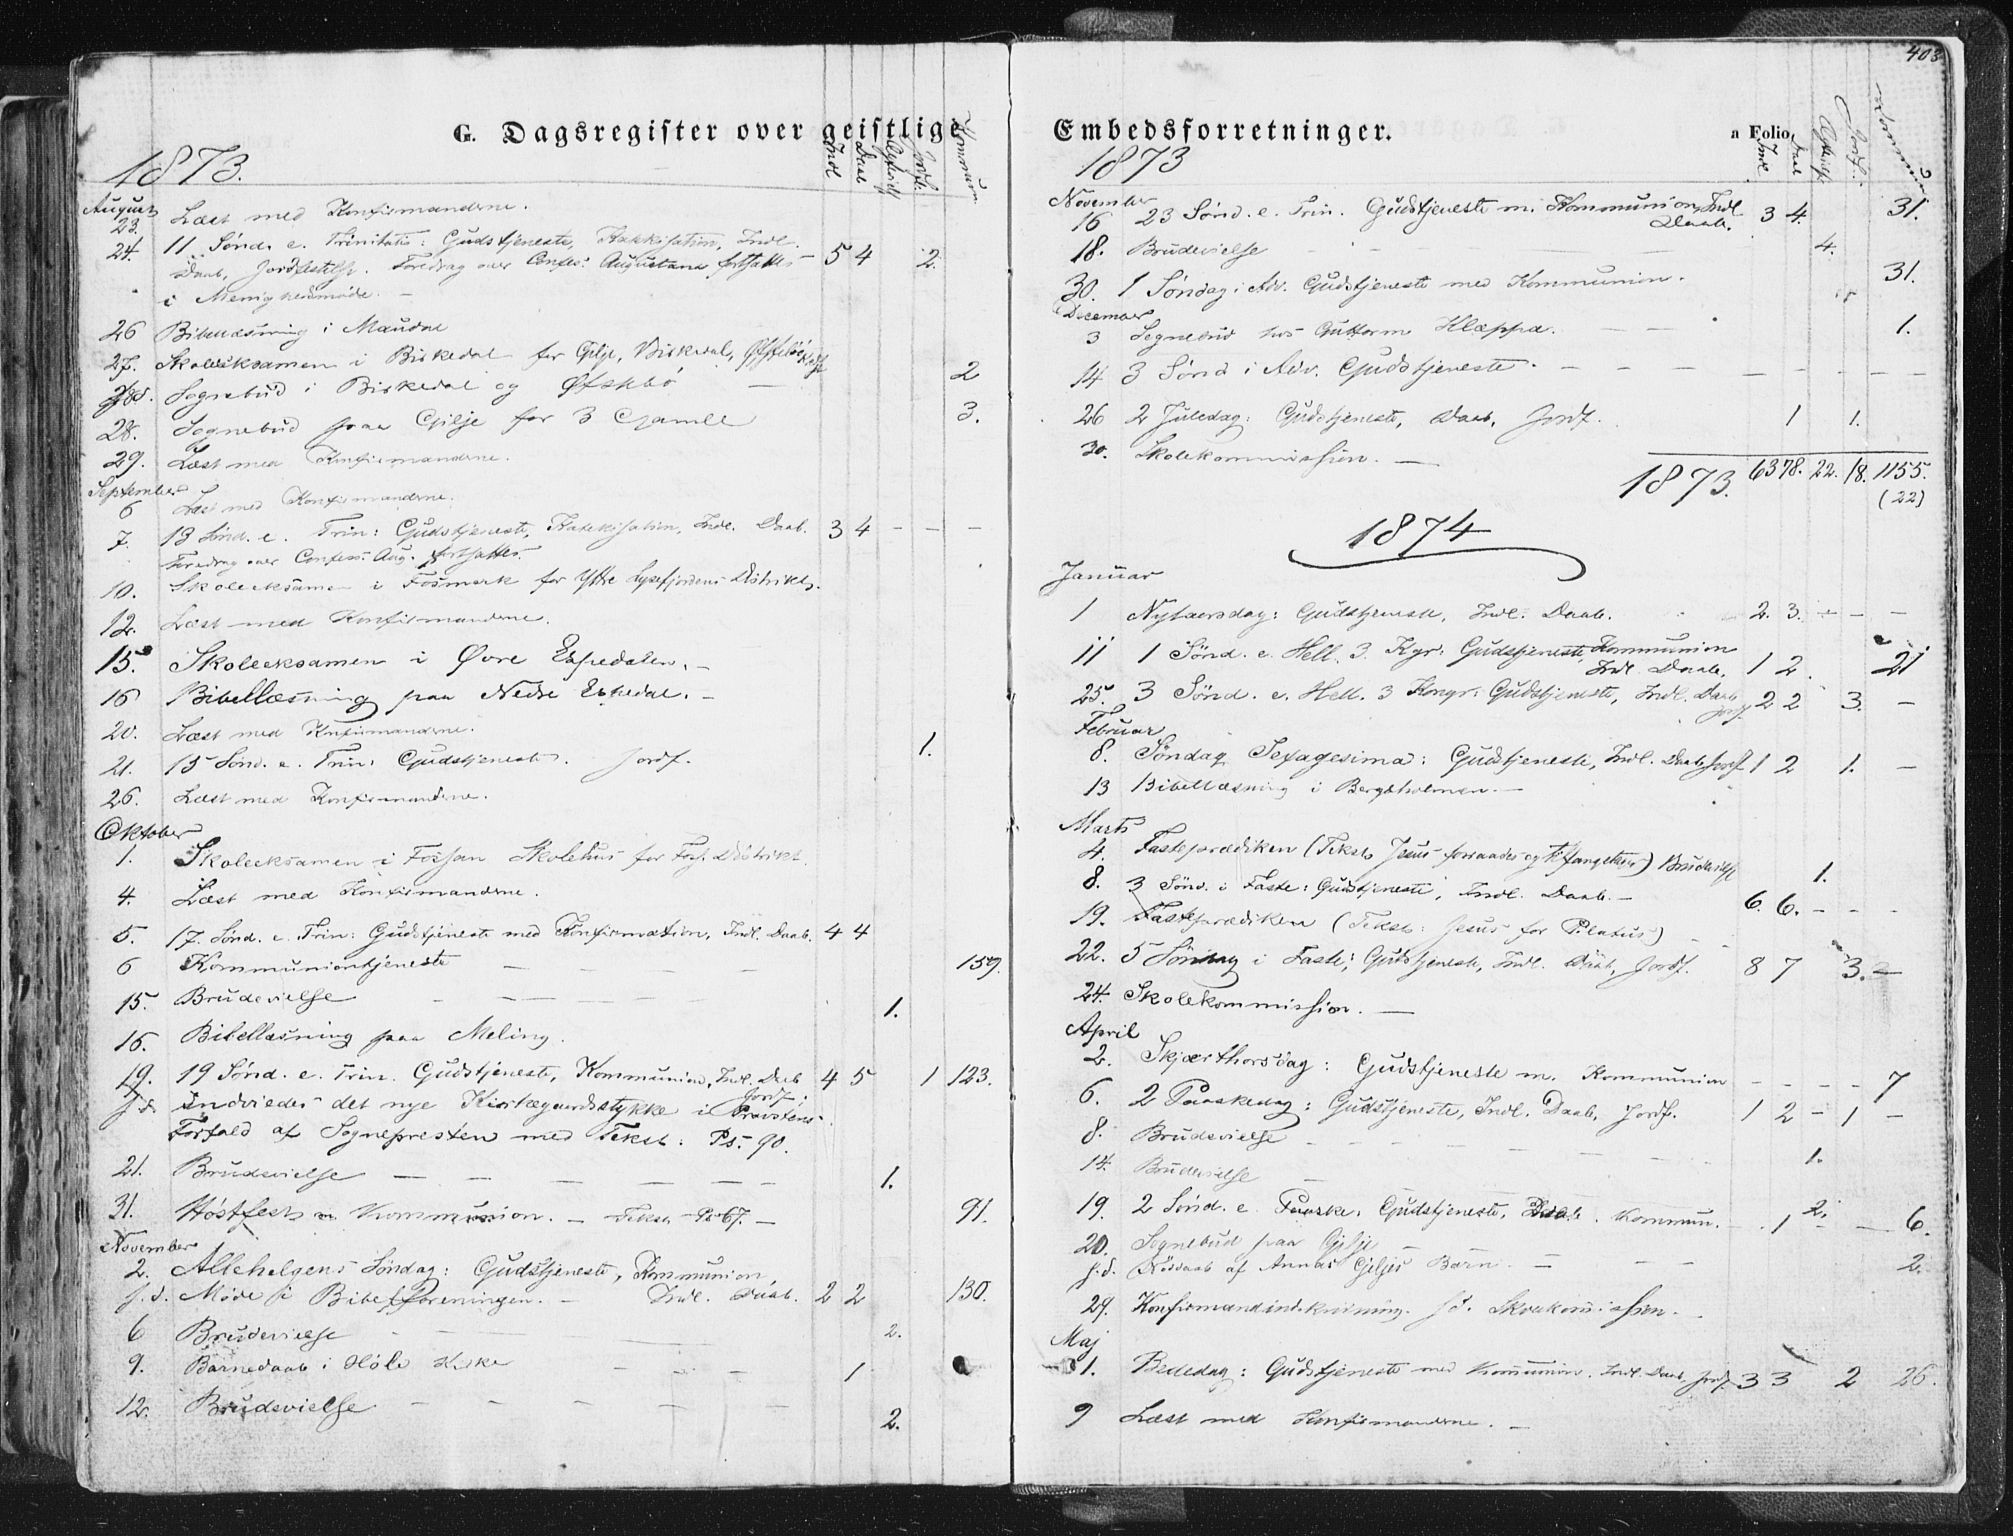 G. Dagsregister over geistlige
1873.
Indl. Daab Jordf. Kommun.
August
23. Læst med Konfirmanderne.
24. 11 Sønd. e. Trinitatis: Gudstjeneste, Katekisation, Indl. 5 4 2.
Daab, Jordfæstelse. Foredrag over Confes: Augustana fortsattes
i Menighedsmøde. –
26 Bibellæsning i Maudal
27. Skoleeksamen i Birkedal for Gilje, Birkedal,
s.d. Sognebud i Birkedal og — 2
28. Sognebud paa Gilje for 3 Gamle 3.
29. Læst med Konfirmanderne.
September
6 Læst med Konfirmanderne.
7. 13 Sønd. e. Trin: Gudstjeneste, Katekisation, Indl. Daab. 3 4 – – –
Foredrag over Confess. Aug. fortsattes.
10. Skoleeksamen i Fosmark for Ytre Lysefjordens Distrikt.
12. Læst med Konfirmanderne.
15. Skoleeksamen i Øvre Espedalen. –
16 Bibellæsning paa Nedre Espedal. –
20. Læst med Konfirmanderne.
21. 15 Sønd. e. Trin: Gudstjeneste. Jordf. 1.
26. Læst med Konfirmanderne.
Oktober
1. Skoleeksamen i Fossan Skolehus for Foss. Distrikt.
4. Læst med Konfirmanderne.
5. 17. Sønd. e. Trin: Gudstjeneste med Konfirmation, Indl. Daab. 4 4
6 Kommuniontjeneste – – – 159.
15. Brudevielse – – – – 1.
16. Bibellæsning paa Meling.
19. 19 Sønd. e. Trin. Gudstjeneste, Kommunion, Indl. Daab 4 5 1 123.
Jordf.
s.d. Indviedes det nye Kirkegaardsstykke i Provstens
Forfald af Sognepresten med Tekst: Ps. 90.
21. Brudevielse — — — — — 1.
31. Høstfest m Kommunion. – Tekst Ps 67. – 91.
November
2. Allehelgens Søndag: Gudstjeneste, Kommunion,
s.d. Møde i Bibelforeningen. – Indl. Daab. 2 2 130.
6 Brudevielse 2.
9. Barnedaab i Høle Kirke – – – 1
12. Brudevielse – – – – 2.
Embedsforretninger.
a Folio
403
1873
Indl. Daab Jordf. Kommun.
November
16 23 Sønd. e. Trin. Gudstjeneste m. Kommunion, Indl. 3 4. 31.
Daab.
18. Brudevielse – – – 4.
30. 1 Søndag i Adv. Gudstjeneste med Kommunion. 31.
December
3 Sognebud hos Guttorm Kleppa. – – 1.
14 3 Sønd i Adv. Gudstjeneste. – – – – – – – –
26 2 Juledag: Gudstjeneste, Daab, Jordf. 1 1.
30. Skolekommission. —
1873. 63 78. 22. 18. 1155.
(22)
1874
Januar
1 Nytaarsdag: Gudstjeneste, Indl. Daab. 2. 3. – – –
11 1 Sønd. e. Hell. 3. Kgr: Gudstjeneste, Kommunion
Indl. Daab. 1 2. 21
25. 3 Sønd. e. Hell. 3 Kongr: Gudstjeneste, Indl. Daab 2 2 3. –
Jordf.
Februar
8. Søndag Sexagesima: Gudstjeneste, Indl. Daab Jordf 1 2 1. –
13 Bibellæsning i Bergsholmen. —
Marts
4. Fasteprædiken (Tekst Jesus forraades og tilfangetages) Brudevielse 1.
8. 3 Sønd. i Faste: Gudstjeneste, Indl. Daab. – 6. 6. – – –
19. Fasteprædiken (Tekst: Jesus for Pilatus) – –
22. 5 Søndag i Faste; Gudstjeneste, Indl. Daab, Jordf. 8 7 3. –
24. Skolekommission. —
April
2. Skjærthorsdag: Gudstjeneste m. Kommunion – – – – 7
6. 2 Paaskedag: Gudstjeneste, Indl. Daab, Jordf. 1 2 – 1 –
8. Brudevielse – – – – –
14. Brudevielse – – – – 1.
19. 2 Sønd. e. Paaske: Gudstjeneste, Daab. Kommun. – 1 2. – – 6.
20. Sognebud paa Gilje
s.d. Nøddaab af Annas Giljes Barn – – – 2.
29. Konfirmandindskrivning. s.d. Skolekommission.
Maj
1. Bededag: Gudstjeneste med Kommunion. Indl. Daab, Jordf. 3 3 2 26.
9 Læst med Konfirmanderne. –